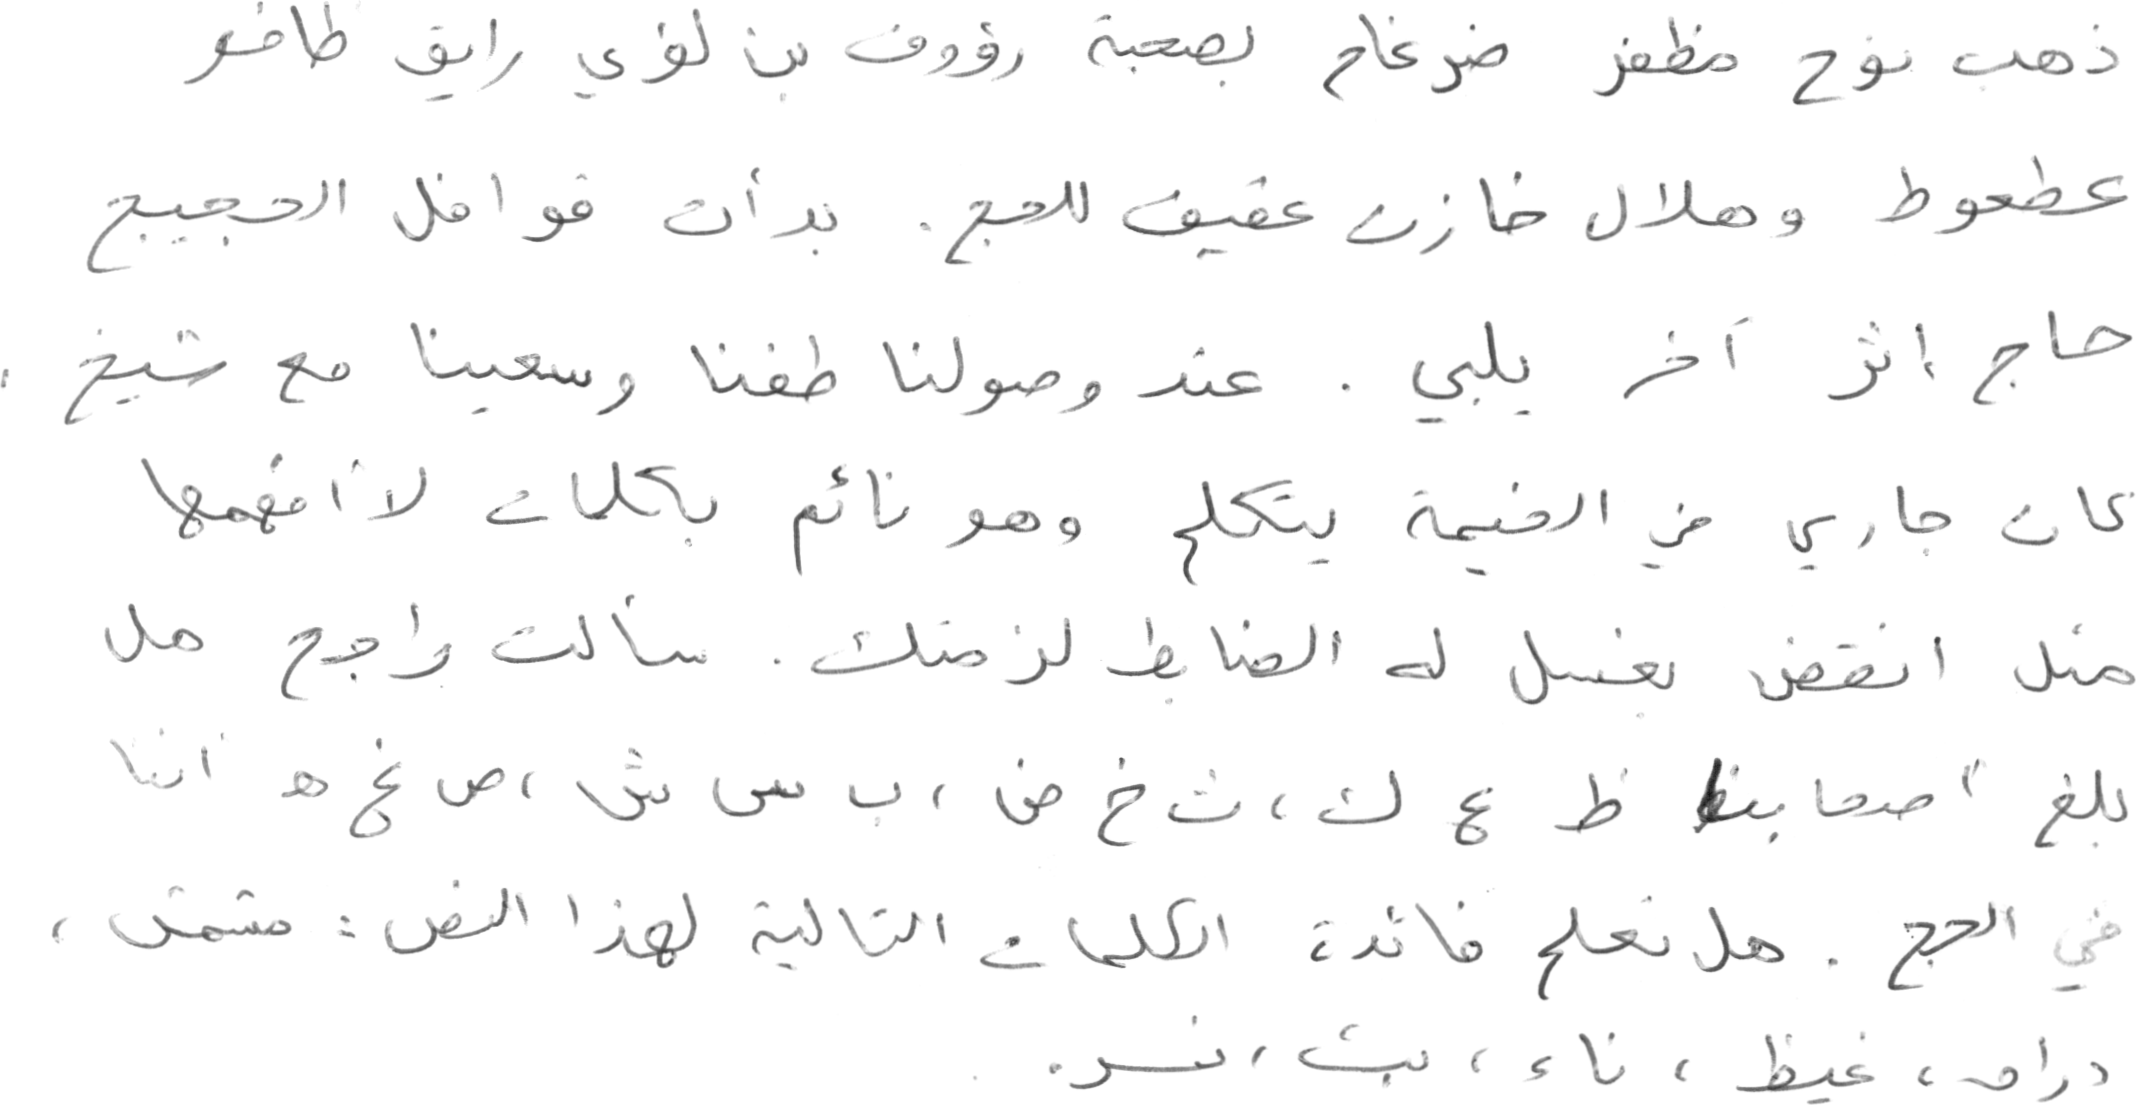 ذهب نوح مظفر ضرغام بصحبة رؤوف بن لؤي رايق ظافر
عطعوط وهلال خازن عفيف للحج. بدأت قوافل الحجيج
حاج إثر آخر يلبي. عند وصولنا طفنا وسعينا مع شيخ.
كان جاري في الخيمة يتكلم وهو نائم بكلمات لا أفهمها
مثل انقض بغسل له الضابط لزمتك. سألت راجح هل
بلغ أصحابنا ظ ع ك، ث خ ض، ب س ش، ص غ ه أننا
في الحج. هل تعلم فائدة الكلمات التالية لهذا النص: مشمش،
دراق، غيظ، ناء، بث، نسر.